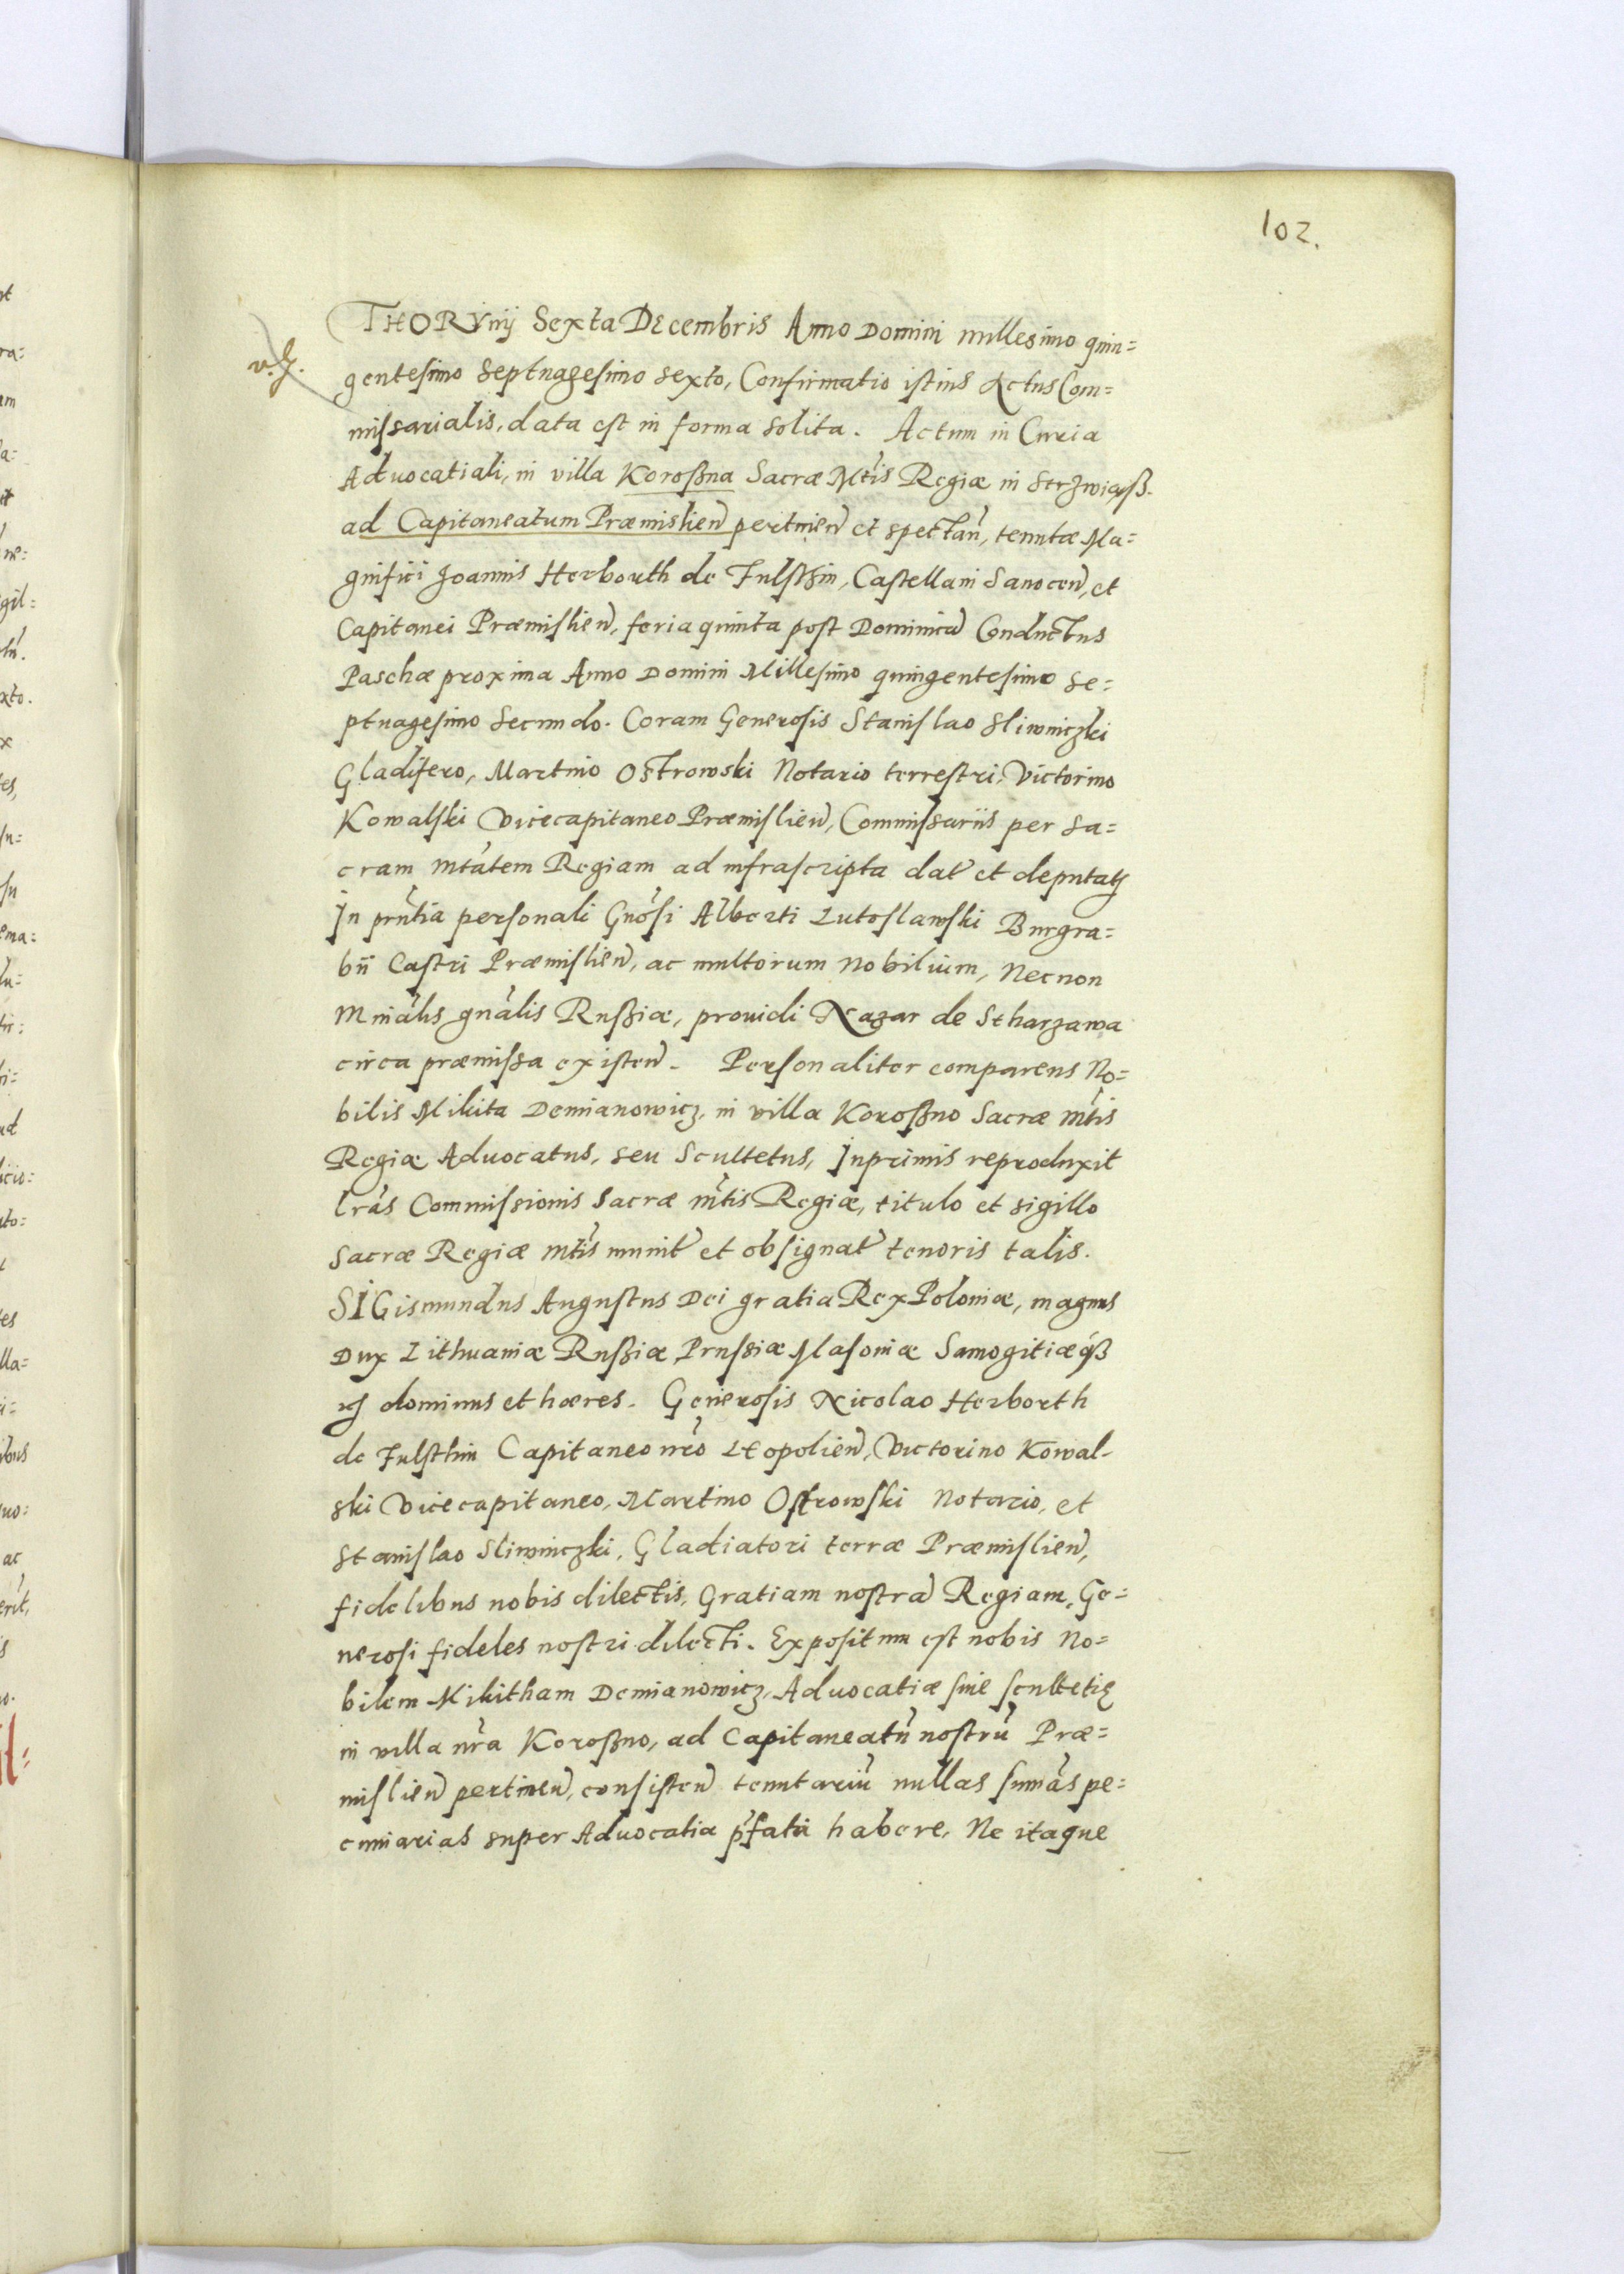 102.
THORVnij Sexta Decembris Anno Domini millesimo quin=
v. J.
gentesimo Septuagesimo sexto, Confirmatio istius Actus Com=
missarialis, data est in forma solita. Actum in Curia
Aduocatiali, in villa Koroßna Sacræ Mtis Regiæ in Strzwiąß.
ad Capitaneatum Præmislień pertinień et spectań, tenutæ Ma=
gnifici Joannis Herborth de Fulsthin, Castellani Sanoceń, et
Capitanei Præmislień, feria quinta post Dominicā Conductus
Paschæ proxima Anno Domini Millesimo quingentesimo se=
ptuagesimo Secundo. Coram Generosis Stanislao Sliwniczki
Gladifero, Martino Ostrowski Notario terrestri, Victorino
Kowalski Vicecapitaneo Præmislień, Commissariis per Sa=
cram Mtatem Regiam ad infrascripta dat et deputatis
In pntia personali Gnosi Alberti Lutoslawski Burgra=
bii Castri Præmislień, ac multorum Nobilium, Necnon
Minālis gnālis Rußiæ, prouidi Nazar de Stharzawa
circa præmissa existeń. Personaliter comparens No=
bilis Mikita Demianowicz, in villa Koroßno Sacræ Mtis
Regiæ Aduocatus, seu Scultetus, Inprimis reproduxit
lras Commissionis Sacræ Mtis Regiæ, titulo et sigillo
Sacræ Regiæ Mtis munit et obsignat tenoris talis.
SIGismundus Augustus Dei gratia Rex Poloniæ, magnus
Dux Lithuaniæ Rußiæ Prussiæ Masoniæ Samogitiæqß
dominus et hæres. Generosis Nicolao Herborth
de Fulsthin Capitaneo nro Leopolień, Victorino Kowal-
ski Vicecapitaneo, Martino Ostrowski Notario, et
Stanislao Sliwniczki, Gladiatori terræ Præmislień,
fidelibus nobis dilectis, Gratiam nostrā Regiam, Ge=
nerosi fideles nostri dilecti. Expositum est nobis No=
bilem Mikitham Demianowicz, Aduocatiæ siue scultetię
in villa nra Koroßno, ad Capitaneatū nostrū Præ=
mislień pertineń, consisteń tenutariū nullas sumās pe=
cuniarias super Aduocatia pfata habere, Ne itaque